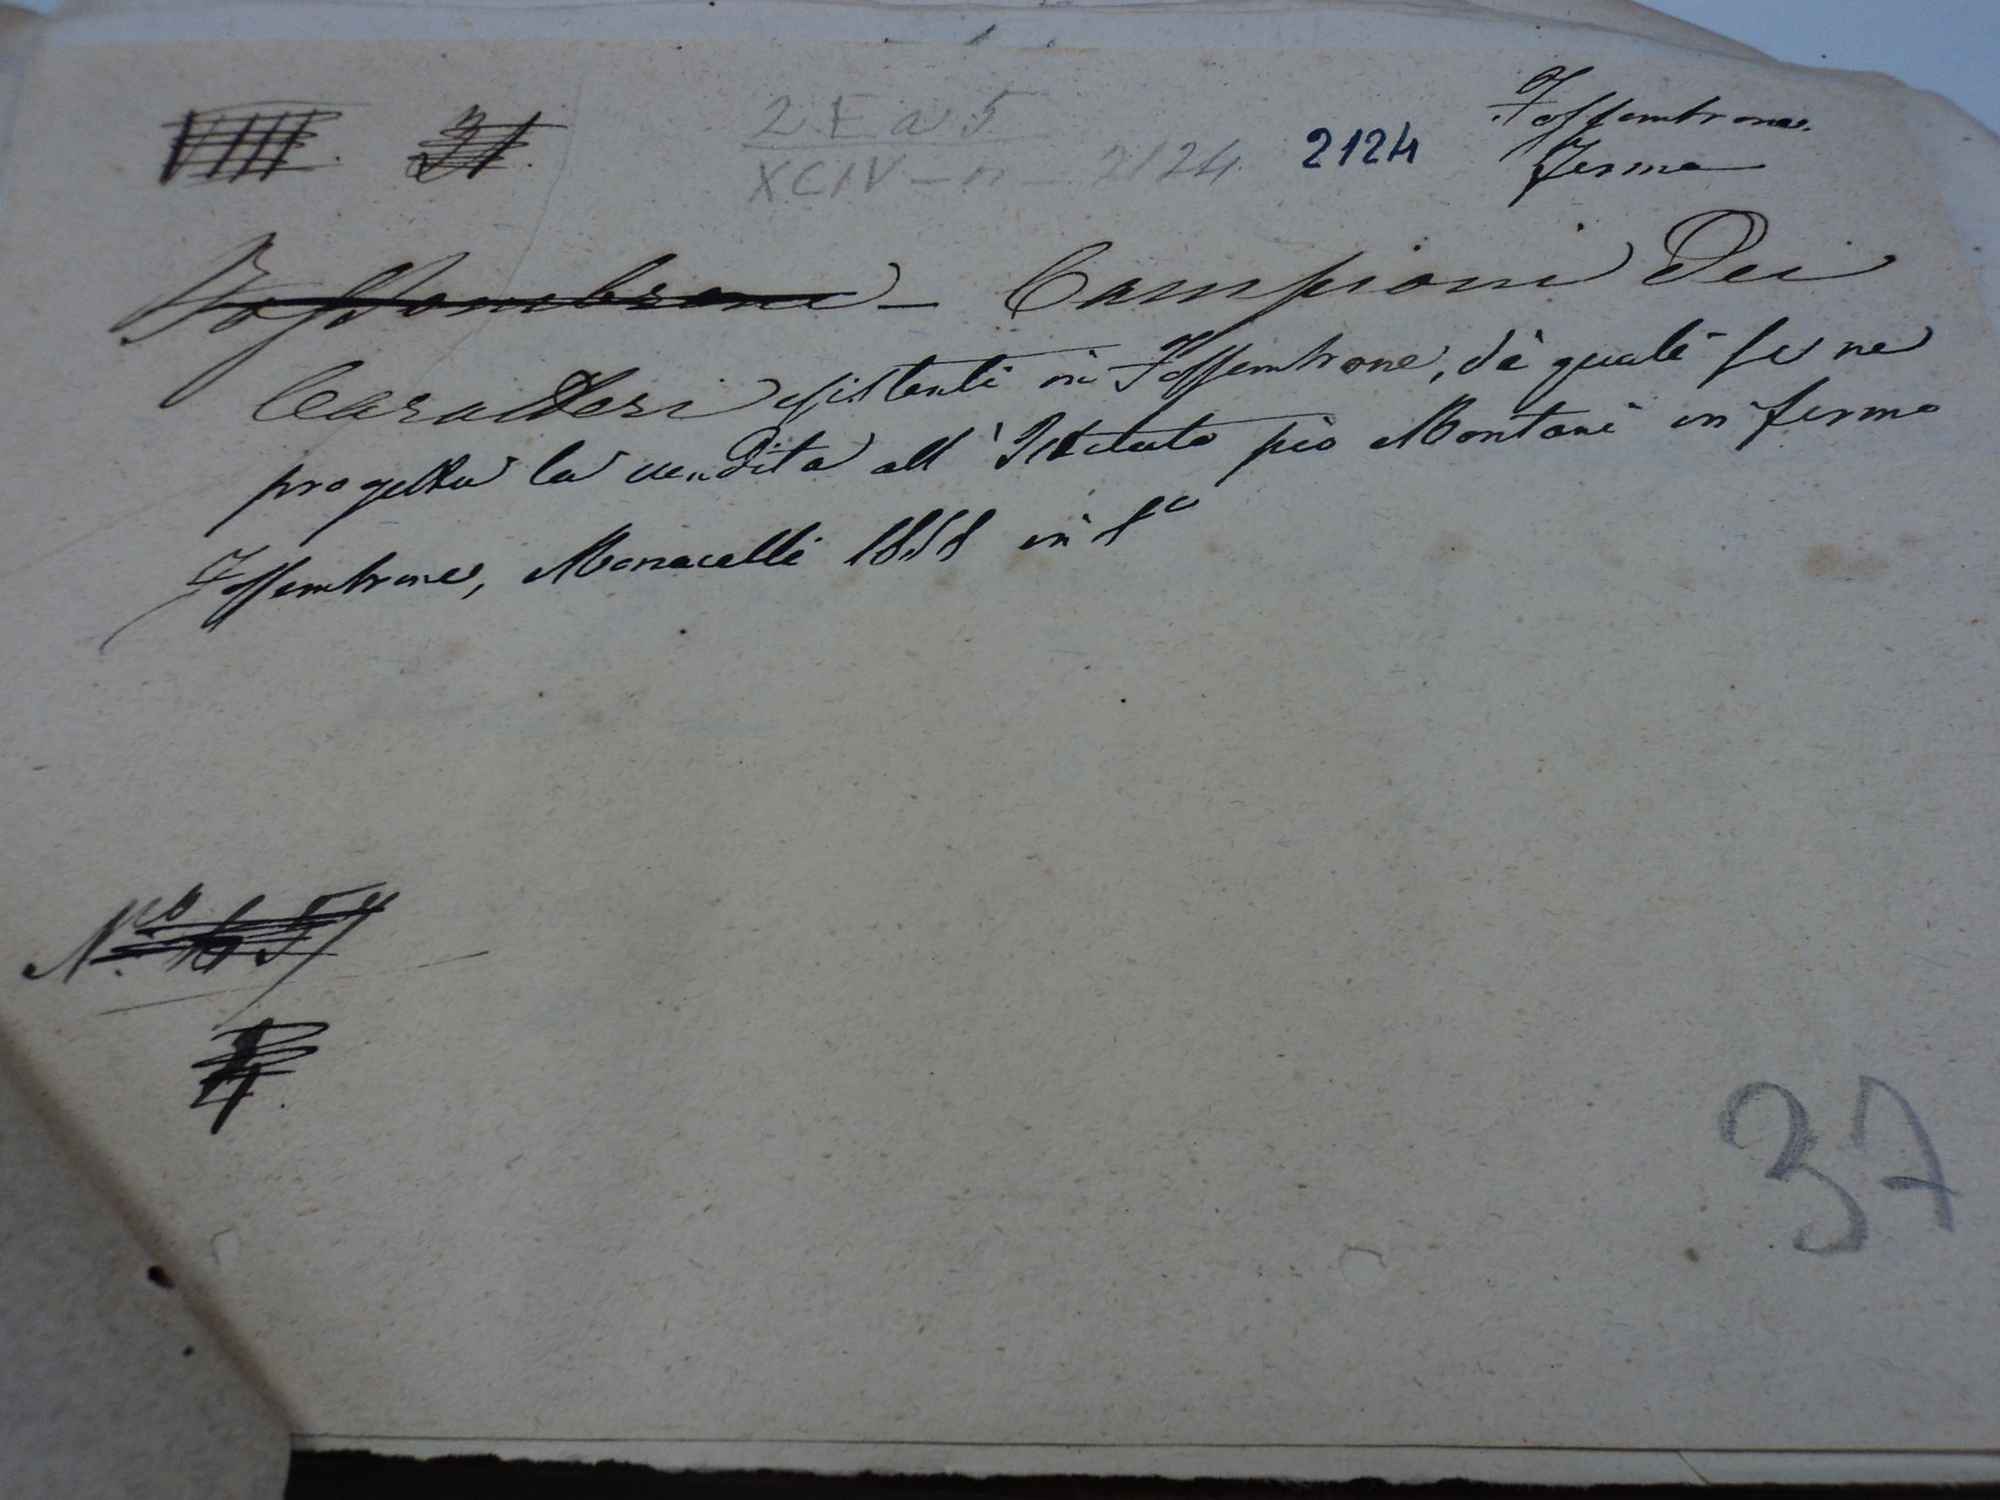 VIIII 31.
2 E a 5
XCIV - n - 2124
2124
Fossombrone.
Fermo
Fossombrone - Campioni dei
Caratteri esistenti in Fossombrone, dè quali se ne
progetta la vendita all' Istituto pio Montani in fermo
Fossombrone, Monacelli 1858 in 8°
N.°
4.
37